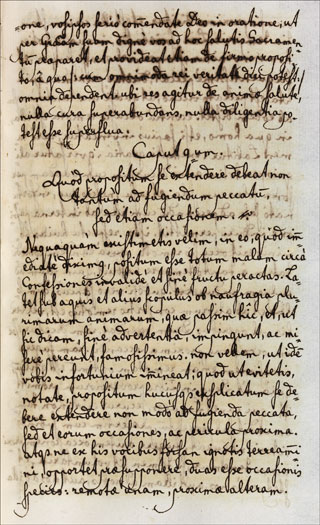 one, vosipsos serio comendate Deo in oratione, ut
per Grãam suam digne vos ad hoc salutis Sacramen-
tũ præparet, et provideat etiam de firmo proposi-
to, à quo, omnia rei veritate dici potest,
omnia dependent. ubi res agitur de animæ salute,
nulla cura superabundans, nulla diligentia po-
test esse superflua.
Caput 9um.
Quod propositum se extendere debeat non
tantum ad fugiendum peccatũ,
sed etiam occasionem.
Nequaquam existimetis velim, in eo, quod im̃-
ediate diximus, positum esse totum malum circa
Confessiones invalidè et sinè fructu peractas. La-
tet sub aquis et alius scopulus ob naufragia plu-
rimarum animarum, qua passim hic, et, ut
sic dicam, sinè advertentia, impingunt, ac mi-
serè pereunt, famosissimus. non vellem, ut idẽ
vobis infortunium im̃ineat; quod ut evitetis,
notate, propositum hucusq; explicatum se de-
bere extendere non modò ad fugienda peccata,
sed et eorum occasiones, ac pericula proxima.
Atq; ne ex his vocibus forsan ignotis terreami-
ni, oportet præsupponere, duas esse occasionis
species: remotã unam, proximã alteram.